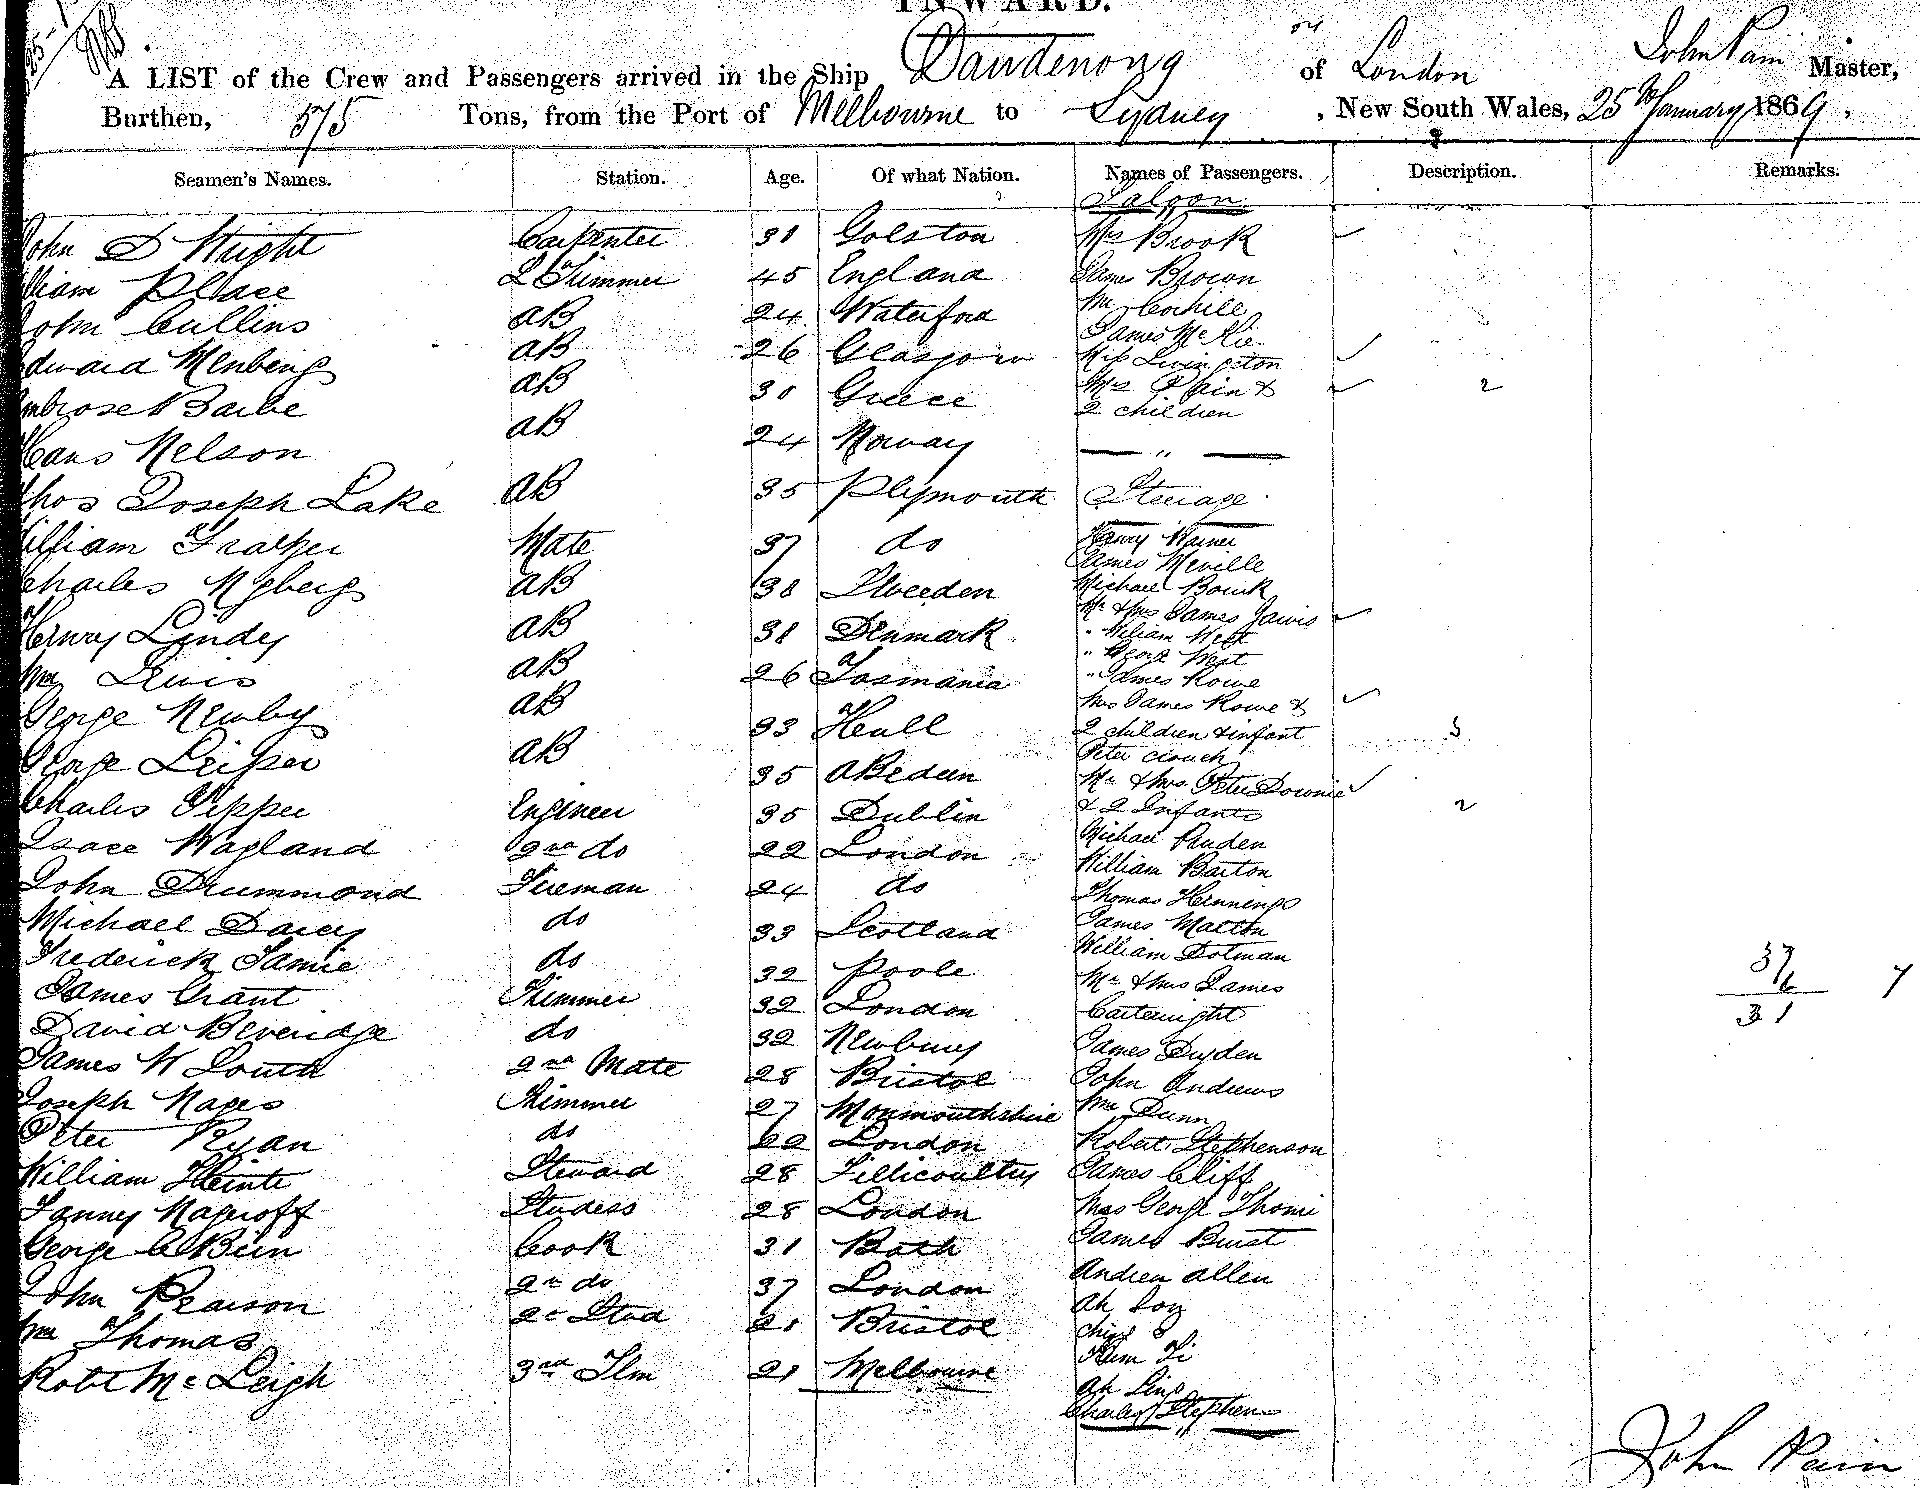 INWARD.
A LIST of the Crew and Passengers arrived in the Ship Dandenong of London John Pain Master,
Burthen, 575 Tons, from the Port of Melbourne to Sydney, New South Wales, 25th January 1869.
Seamen's Names. Station. Age. Of what Nation. Names of Passengers. Description. Remarks.
Saloon
John D Wright Carpenter 31 Golston Mrs Brook
lliam Place L Trimmer 45 England James Brown
John Cullins AB 24 Waterford Mr
Edward AB 26 Glasgow James McKie
Miss Livingston
Ambrose Barbe AB 31 Greece Mrs Pain & 2
2 children
Hans Nelson AB 24 Norway — " —
Thos Joseph Lake AB 35 Plymouth Steerage
William Mate 37 do Henry Warner
James Neville
Charles Nyberg AB 31 Sweeden Michael Bourk
Mr & Mrs James Jarvis
Henry Lindy AB 31 Denmark " William West
" George West
Wm Lewis AB 26 Tasmania " James Rowe
George Newby AB 33 Heull Mrs James Rowe &
2 children & infant 3
Peter Crouch
George Leiper AB 35 Abedeen Mr & Mrs Peter Downie
Charles Tipper Engineer 35 Dublin & 2 Infants 2
Isace Wagland 2nd do 22 London Michael
William Barton
John Drummond Fireman 24 do Thomas Hennings
Michael Darcy do 33 Scotland James Matton
William Dotman
Frederick Jamie do 32 Poole Mr & Mrs James
James Grant Trimmer 32 London Cartwright
37
6
31
7
David Beveridge do 32 Newbury James Dryden
James W South 2nd Mate 28 Bristol John Andrews
Joseph Trimmer 27 Monmouthshire Wm Dunn
Peter Ryan do 22 London Robert Stephenson
William Steward 28 Tillicoultry James Cliff
Fanny Studess 28 London Mrs George
George Cook 31 Bath James
John Pearson 2nd do 37 London Andrew Allen
Ah
Wm Thomas 2d Stud 21 Bristol
Robt McLeigh 3rd 21 Melbourne
Ah Ling
Charles Stephens
John Pain